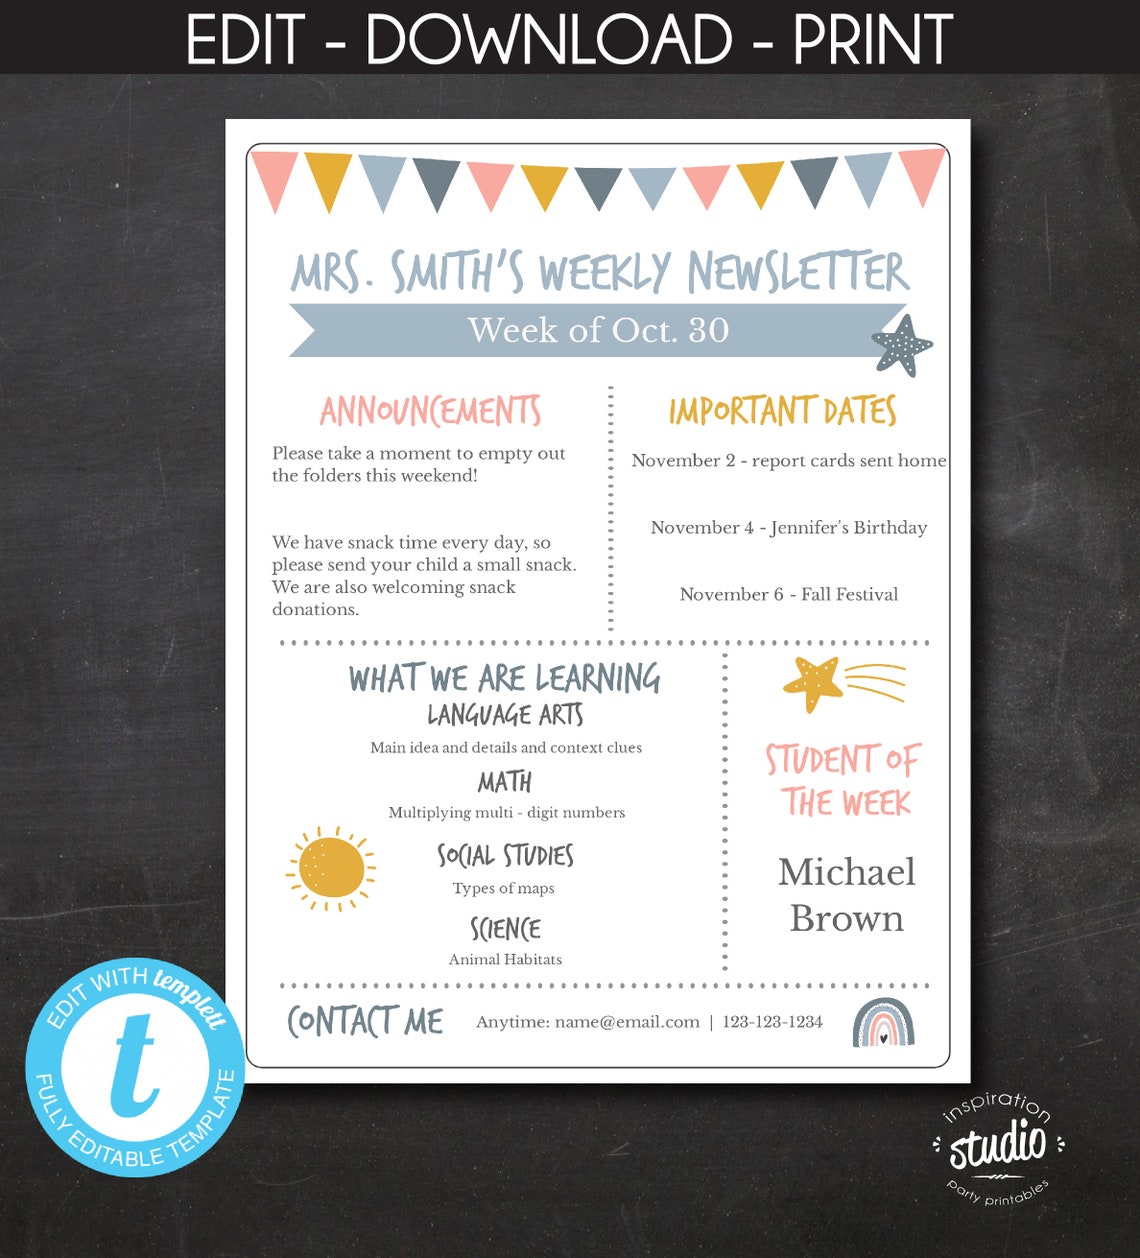 EDIT - DOWNLOAD - PRINT
MRS. SMITH'S WEEKLY NEWSLETTER
Week of Oct. 30
ANNOUNCEMENTS
Please take a moment to empty out
the folders this weekend!
We have snack time every day, so
please send your child a small snack.
We are also welcoming snack
donations.
IMPORTANT DATES
November 2 - report cards sent home
November 4 - Jennifer's Birthday
November 6 - Fall Festival
WHAT WE ARE LEARNING
LANGUAGE ARTS
Main idea and details and context clues
MATH
Multiplying multi - digit numbers
SOCIAL STUDIES
Types of maps
SCIENCE
Animal Habitats
STUDENT OF
THE WEEK
Michael
Brown
CONTACT ME
Anytime: name@email.com | 123-123-1234
EDIT WITH templett
t
FULLY EDITABLE TEMPLATE
inspiration
studio
party printables